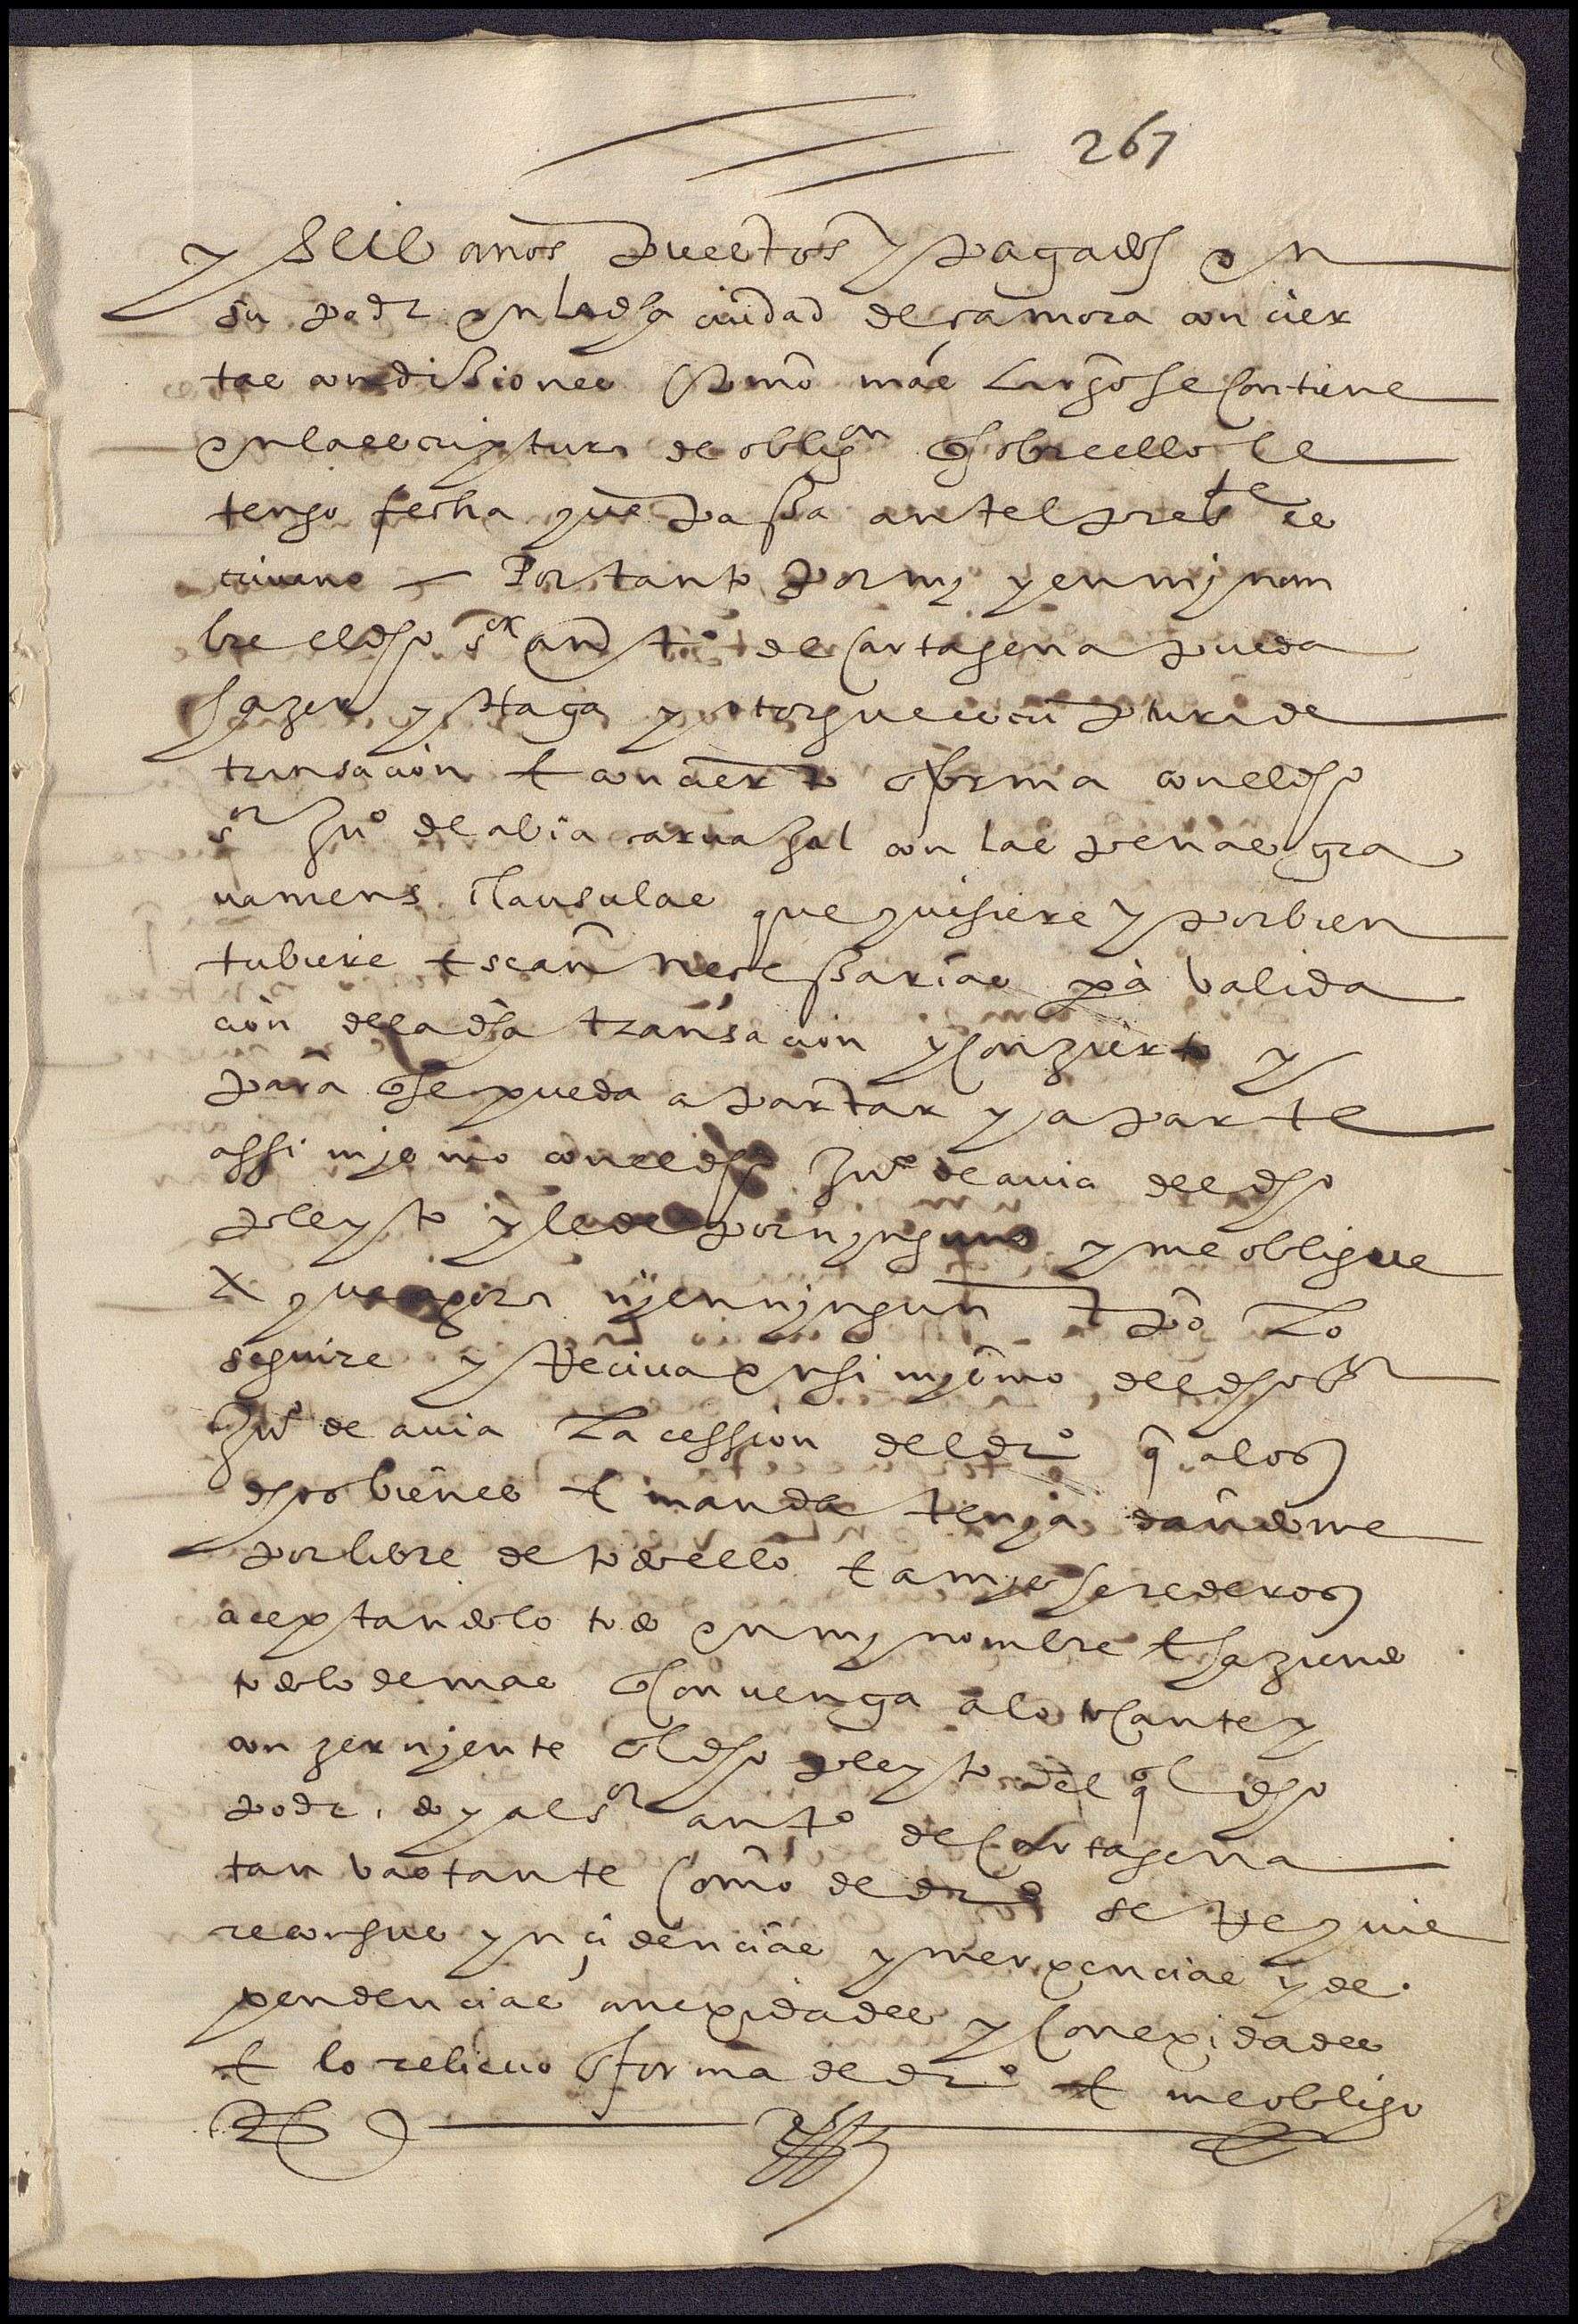 267
y seis años puestos y pagados en
su podr en la dha ciudad de çamora con cier
tas condissiones como mas largo se contiene
en la escriptura de obligon q sobre ello le
tengo fecha que passa antel preste es
criuano — Por tanto por mj y en mj nom
bre el dho sor anto de cartagena pueda
hazer y Haga y otorgue escriptura de
transacion e concierto en forma con el dho
sr Juo de abia caruajal con las penas gra
uamens clausulas que quisiere y por bien
tubiere e sean necessarias pa valida
cion de la dha transacion y conzierto y
para q se pueda apartar y aparte
assi mjsmo con el dho Juo de auia del dho
pleyto y le de por njnguno y me obligue
a que agora nj en njngun tpo lo
seguire y Reciua en si mjsmo del dho sr
Juo de auia la cession del dro q a los
dhos bienes e manda tenja dandome
por libre de todo ello e a mjs herederos
aceptandolo todo en mj nombre e haziendo
todo lo demas q conuenga a lo tocante y
conzernjente al dho pleyto del ql dho
podr doy al sor anto de Cartagena
tan bastante como de dro se Requie
re con sus yncidencias ymerxencias y de
pendencias anexidades y conexidades
e lo relieuo en forma de dro e me obligo